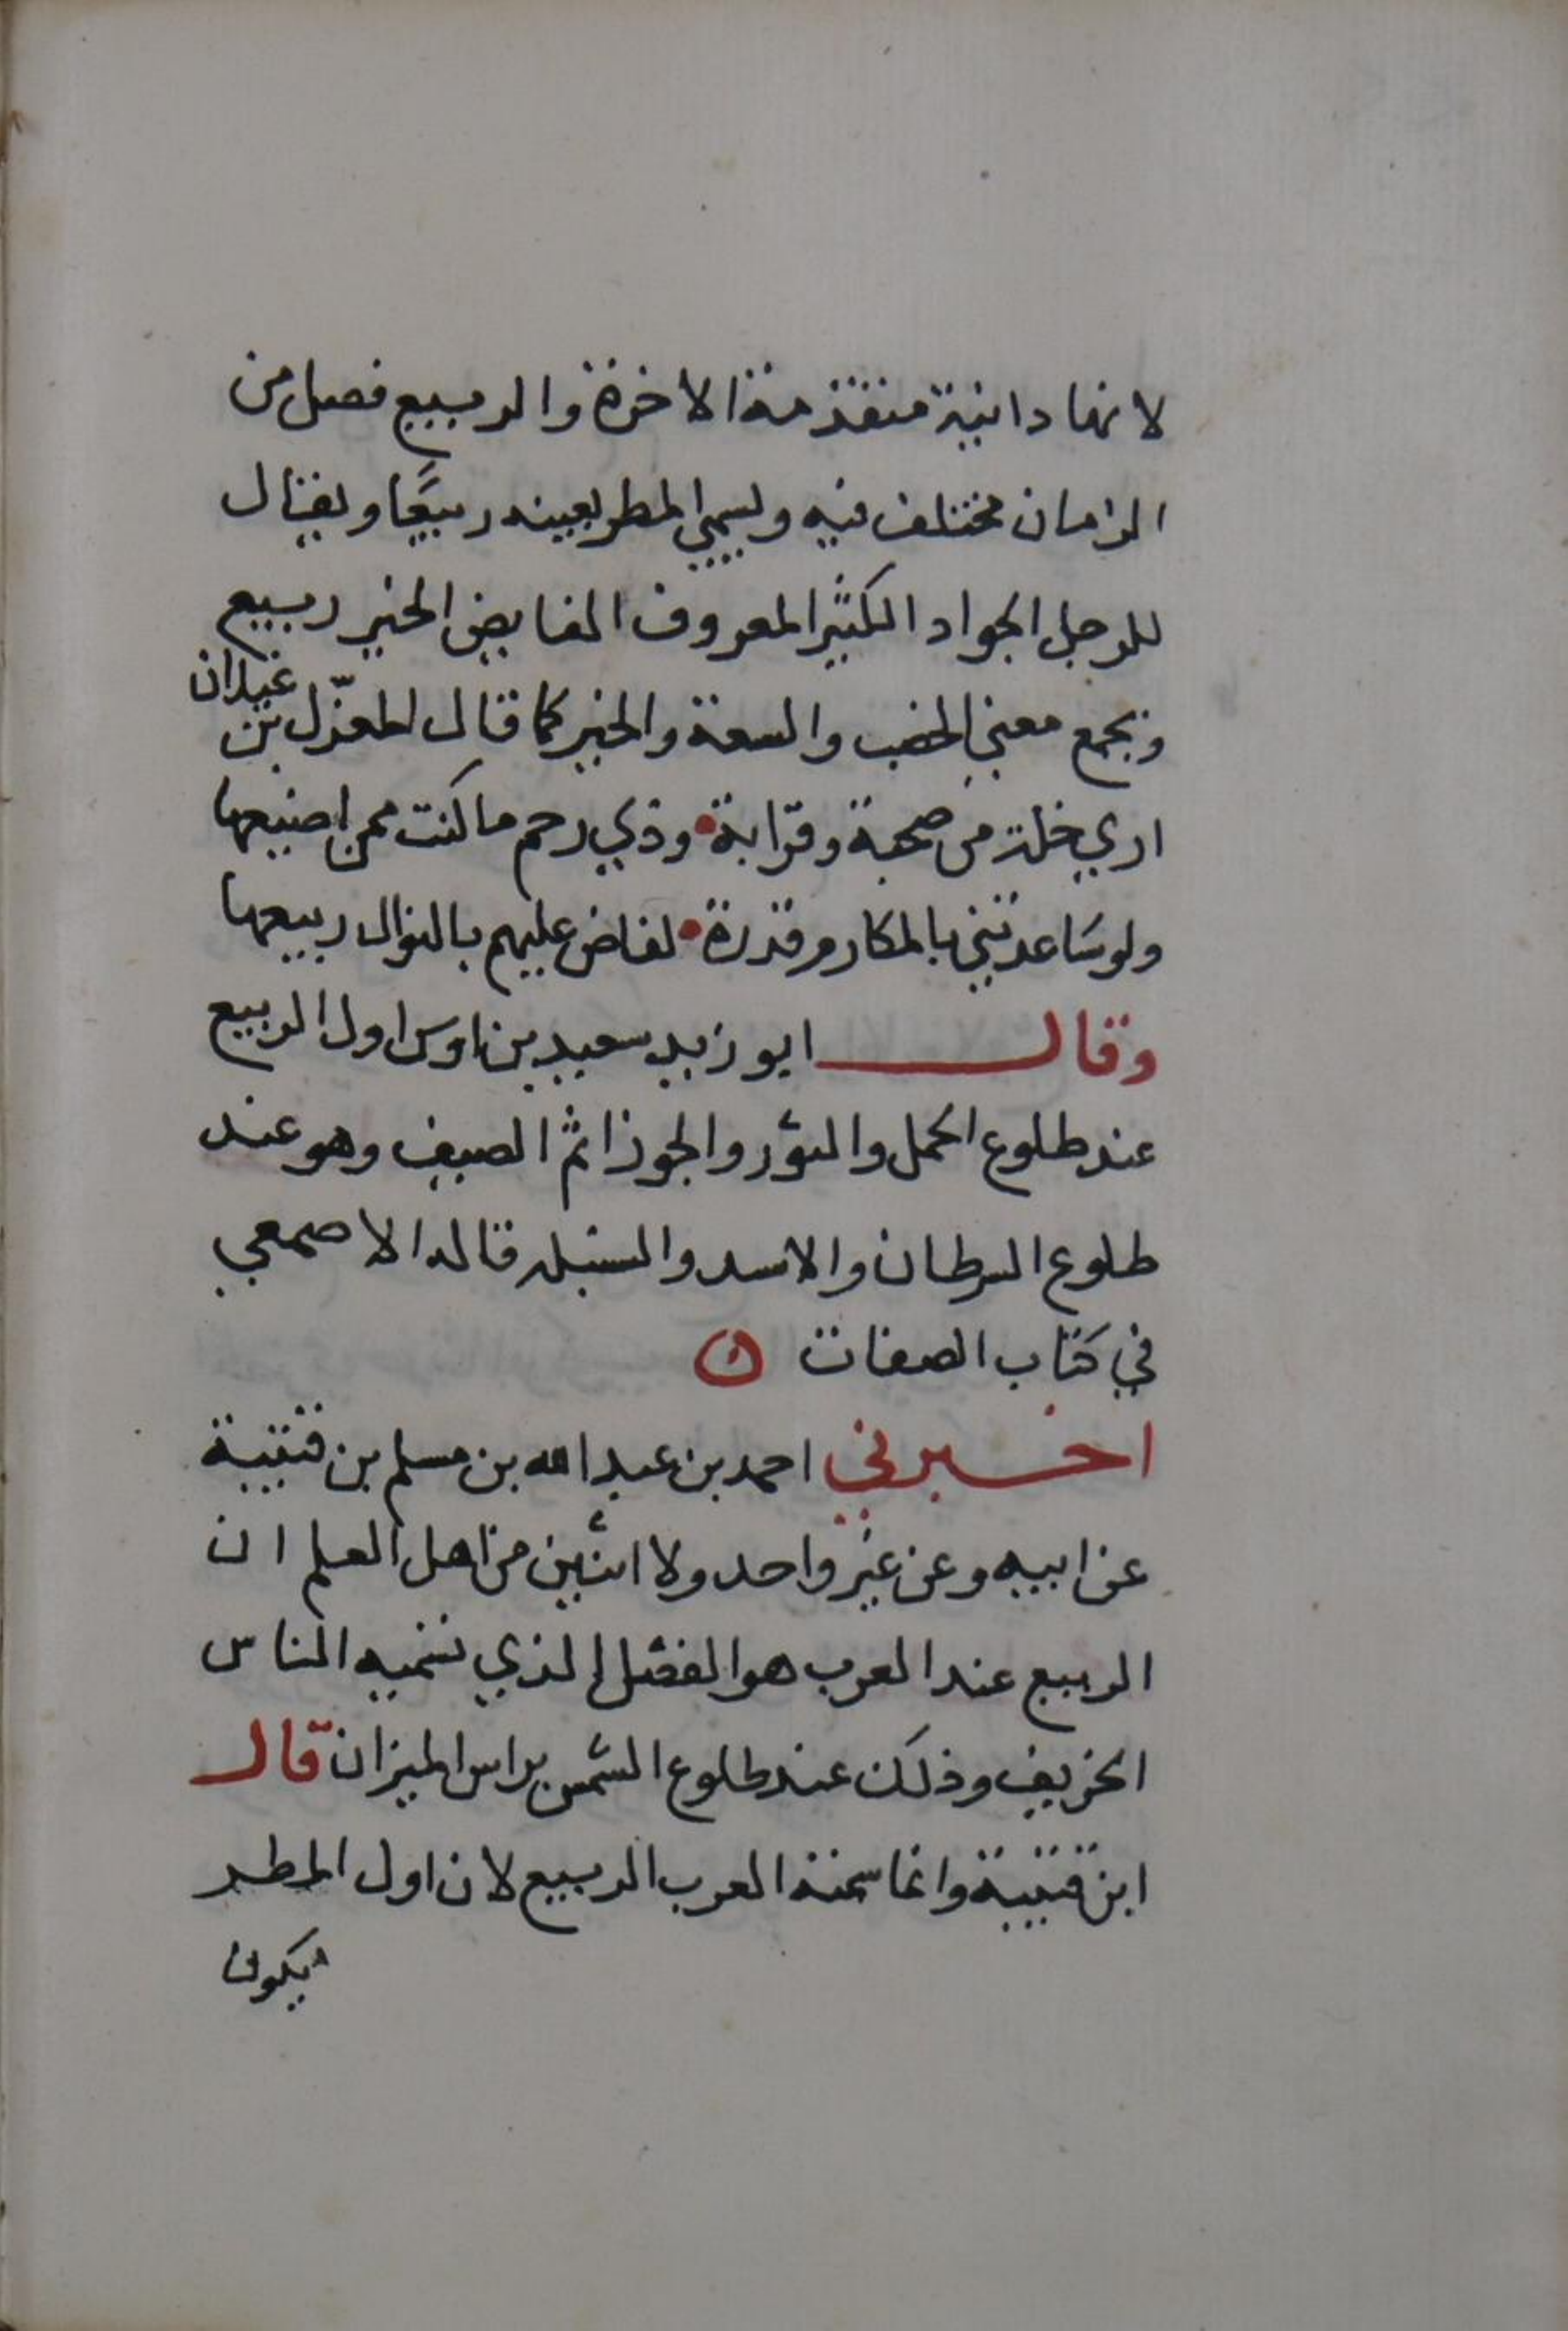 لانها دانية متقدمة الاخرة والربيع فصل من
الزمان مختلف فيه ويسمي المطر بعينه ربيعًا ويقال
للرجل الجواد الكثير المعروف الفايض الخير ربيع
ويجمع معني الخصب والسعة والخير كما قال المعذّل بن غيلان
اري خلة من صحبة وقرابة • وذي رحم ما كنت ممن اضيعها
ولو ساعدتني بالمكارم قدرة • لفاض عليهم بالنوال ربيعها
وقال ابو زيد سعيد بن اوس اول الربيع
عند طلوع الحمل والثور والجوزا ثم الصيف وهو عند
طلوع السرطان والاسد والسنبله قاله الاصمعي
في كتاب الصفات
اخبرني احمد بن عبد الله بن مسلم بن قتيبة
عن ابيه وعن غير واحد ولا اثنين من اهل العلم ان
الربيع عند العرب هو الفصل الذي تسميه الناس
الخريف وذلك عند طلوع الشمس براس الميزان قال
ابن قتيبة وانما سمته العرب الربيع لان اول المطر
يكون